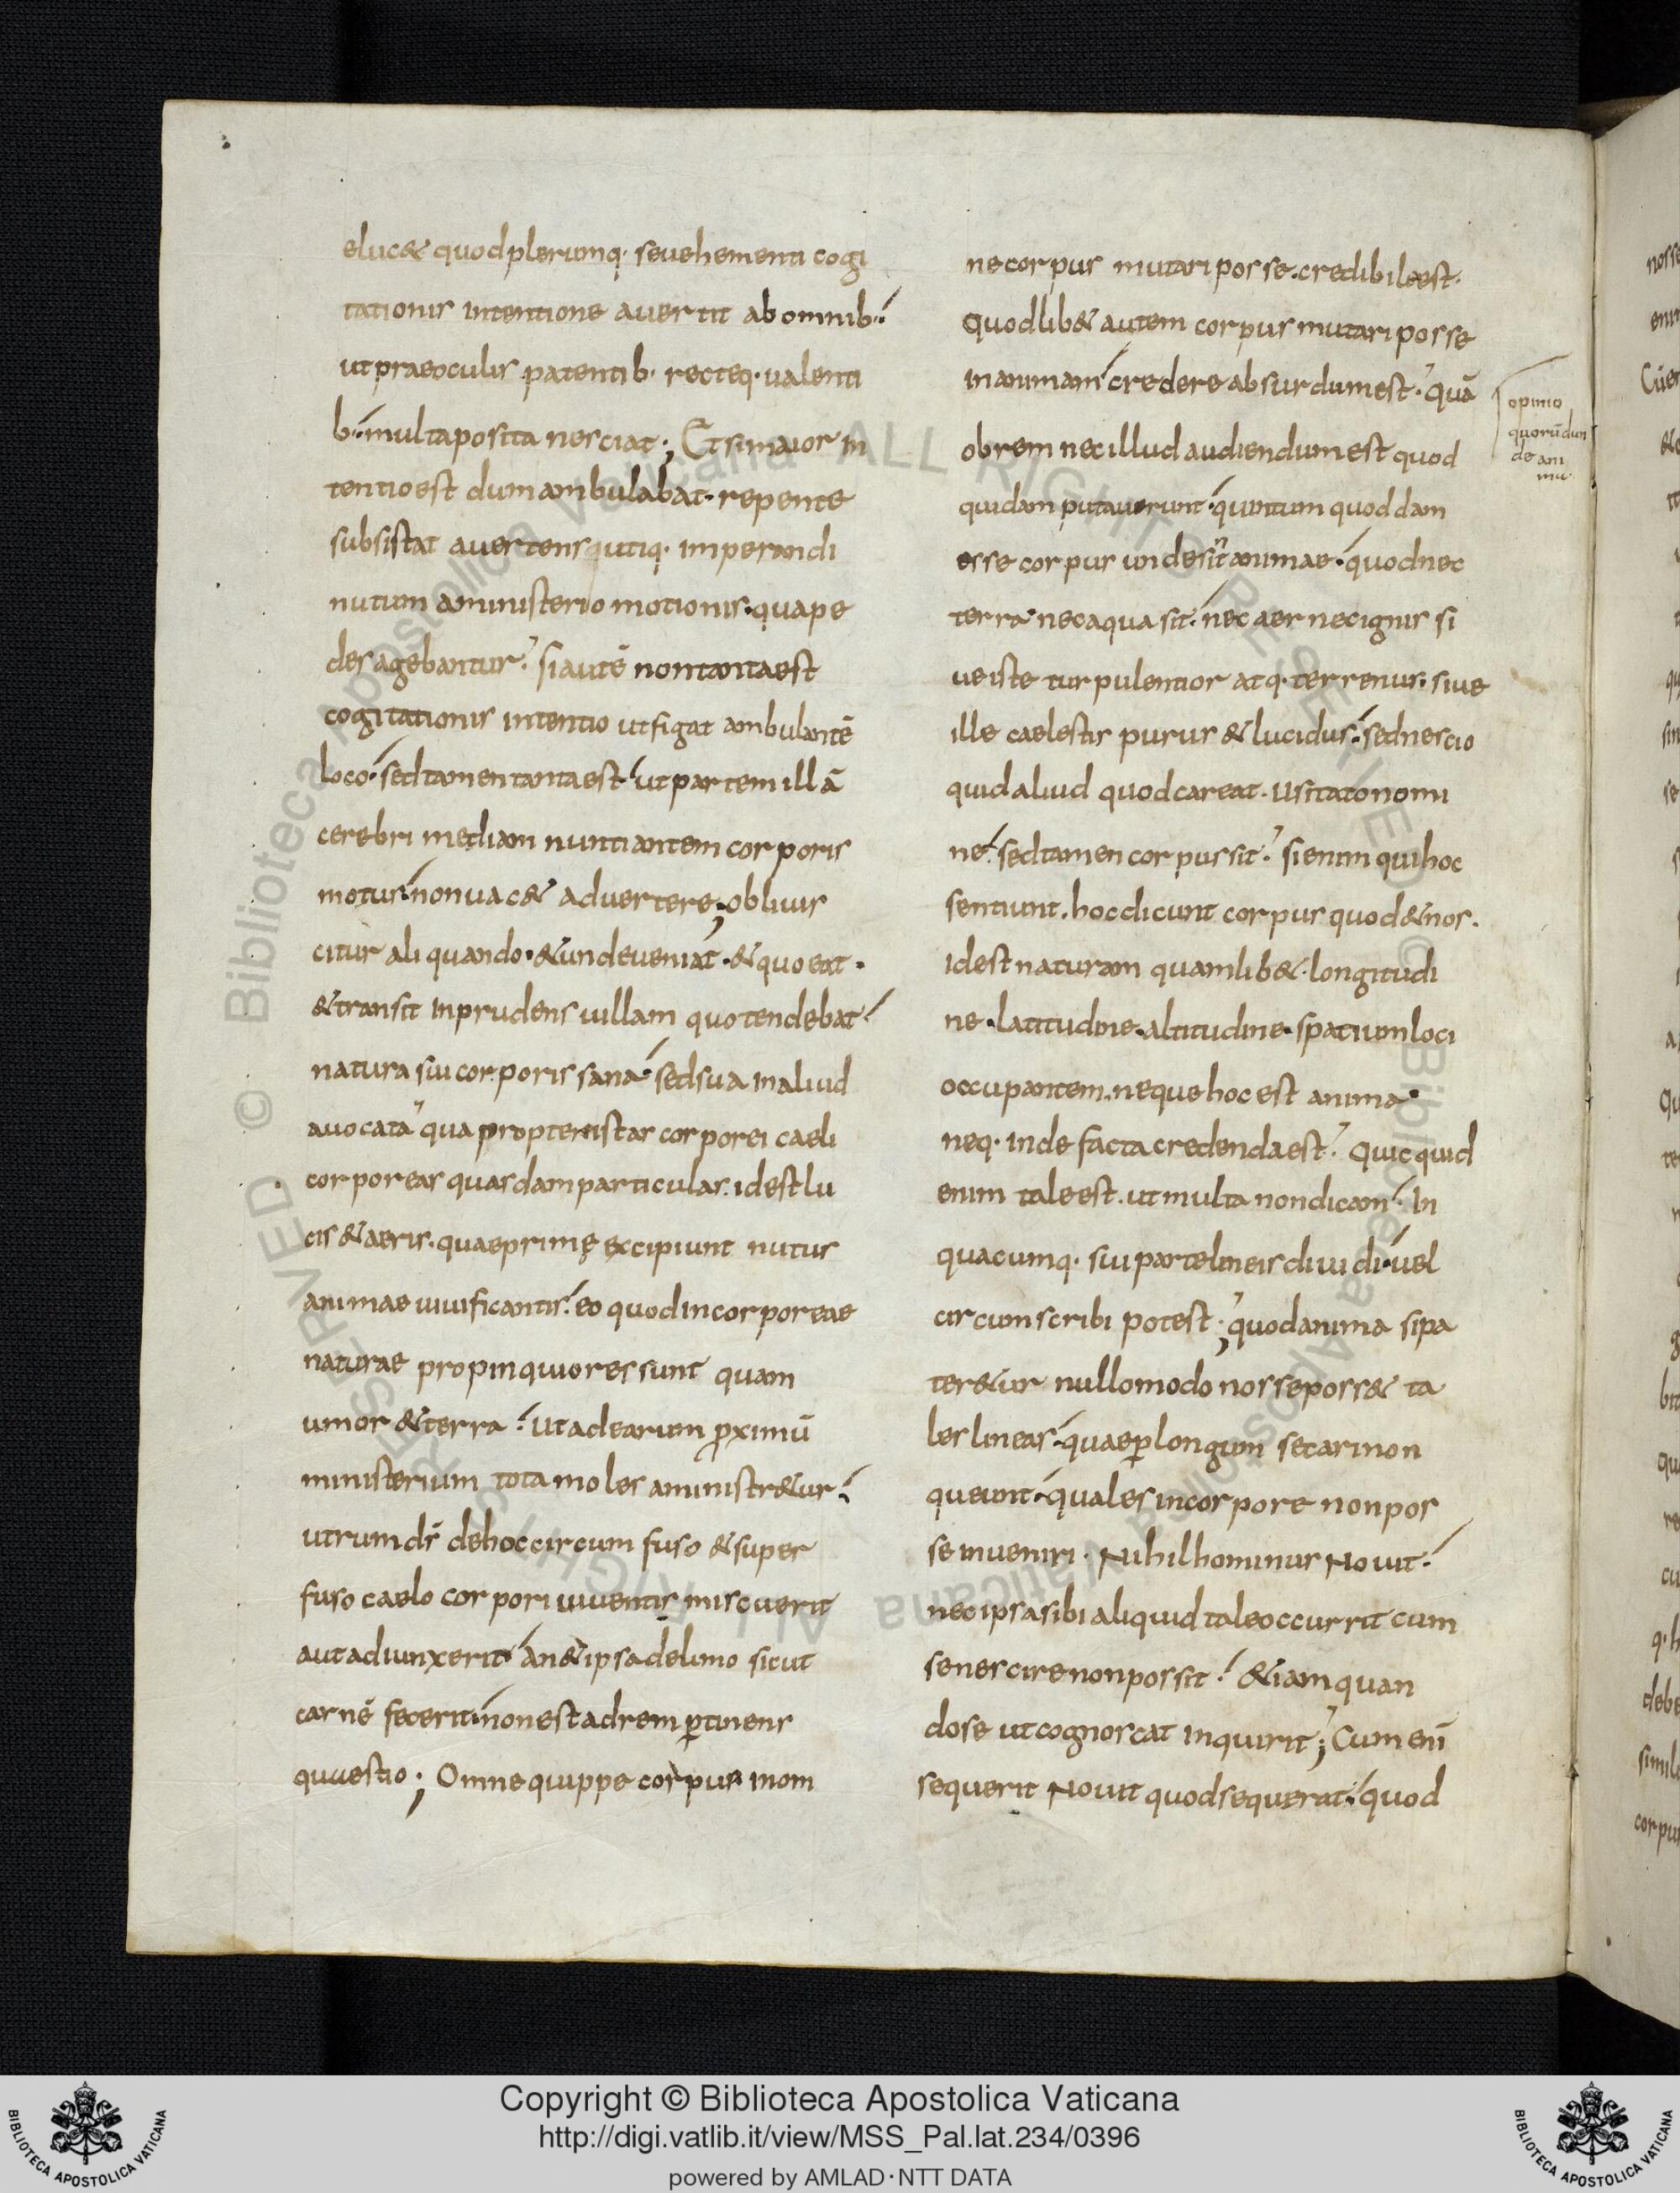 eluc& quod plerumq· se uehementi cogi
tationis intentione auertit ab omnib·
ut prae oculis patentib· recteq· ualenti
b· multa posita nesciat; Et si maior in
tentio est dum ambulabat· repente
subsistat auertens utiq· imperandi
nutum aministerio motionis· qua pe
des agebantur· si autē non tanta est
cogitationis intentio ut figat ambulantē
loco· sed tamen tanta est· ut partem illā
cerebri mediam nuntiantem corporis
motus· non uac& aduertere; obliuis
citur aliquando· & unde ueniat· & quo eat·
& transit inprudens uillam quo tendebat·
natura sui corporis sana· sed sua in aliud
auocata· qua propter istas corporei caeli
corporeas quasdam particulas· id est lu
cis & aeris· quae prime excipiunt nutus
animae uiuificantis· eo quod incorporeae
naturae propinquiores sunt quam
umor & terra· ut ad earum ꝓximū
ministerium tota moles aministr&ur·
utrum dr̄ de hoc circum fuso & super
fuso caelo corpori uiuentis miscuerit
aut adiunxerit· an & ipsa de limo sicut
carnē fecerit· non est ad rem ꝑtinens
quaestio; Omne quippe corpus in om
ne corpus mutari posse· credibile est·
Quodlib& autem corpus mutari posse
in animam· credere absurdum est· Quā
obrem nec illud audiendum est quod
quidam putauerunt· quintum quoddam
esse corpus unde sit animae· quod nec
terra nec aqua sit· nec aer nec ignis si
ue iste turpulentior atq· terrenus· siue
ille caelestis purus & lucidus· sed nescio
quid aliud quod careat· usitato nomi
ne· sed tamen corpus sit· si enim qui hoc
sentiunt· hoc dicunt corpus quod & nos·
id est naturam quamlib&· longitudi
ne· latitudine· altitudine· spatium loci
occupantem· neque hoc est anima·
neq· inde facta credenda est· Quicquid
enim tale est· ut multa non dicam· In
quacumq· sui parte lineis diuidi· uel
circumscribi potest; quod anima si pa
ter&ur nullo modo nosse poss& ta
les lineas· quae ꝑ longum secari non
queunt· quales in corpore non pos
se inueniri· Nihil hominus Nouit·
nec ipsa sibi aliquid tale occurrit cum
se nescire non possit· &iam quan
do se ut cognoscat inquirit; Cum enī
se querit Nouit quod se querat· quod
opinio
quorūdam
de ani
ma
Copyright © Biblioteca Apostolica Vaticana
http://digi.vatlib.it/view/MSS_Pal.lat.234/0396
powered by AMLAD·NTT DATA